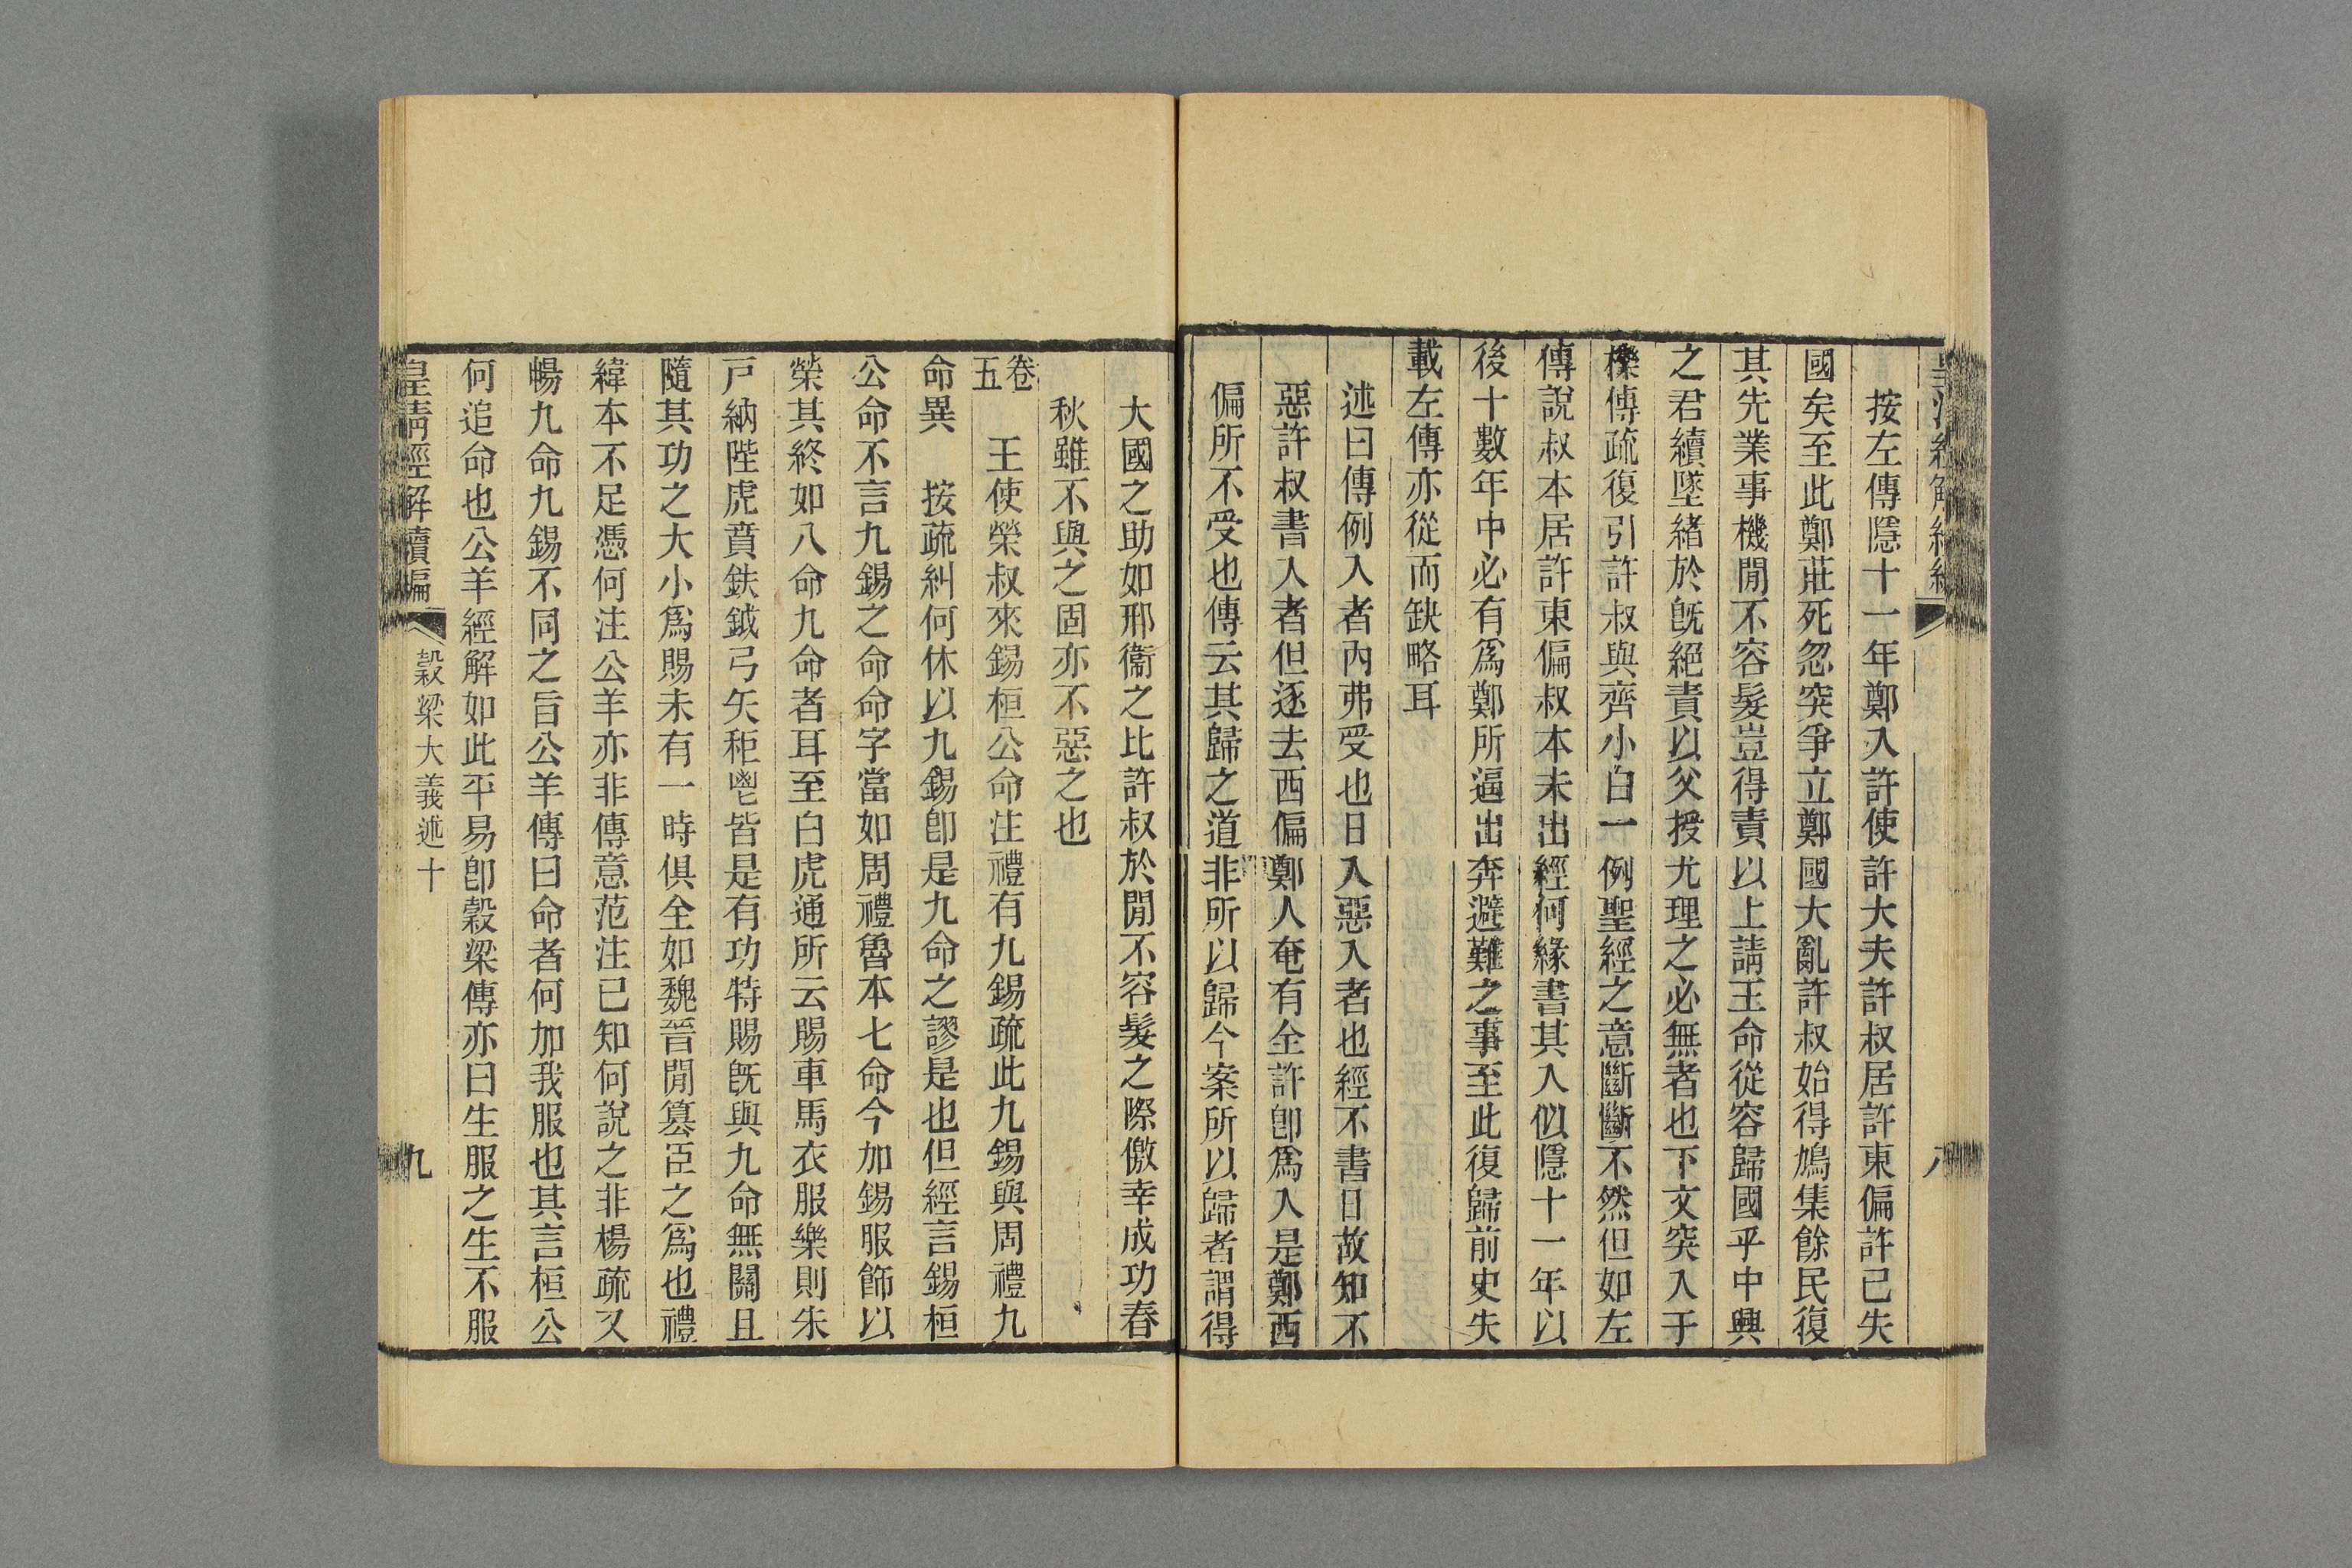 按左傳隱十一年鄭入許使許大夫許叔居許東偏許已失
國矣至此鄭莊死忽突爭立鄭國大亂許叔始得鳩集餘民復
其先業事機閒不容髮豈得責以上請王命從容歸國乎中興
之君續墜緒於旣絕責以父授尤理之必無者也下文突入于
櫟傳疏復引許叔與齊小白一例聖經之意斷斷不然但如左
傳說叔本居許東偏叔本未出經何緣書其入似隱十一年以
後十數年中必有爲鄭所逼出奔避難之事至此復歸前史失
載左傳亦從而缺略耳
述曰傳例入者內弗受也日入惡入者也經不書日故知不
惡許叔書入者但逐去西偏鄭人奄有全許卽爲入是鄭西
偏所不受也傳云其歸之道非所以歸今案所以歸者謂得
八
大國之助如邢衞之比許叔於閒不容髮之際儌幸成功春
秋雖不與之固亦不惡之也
卷五 王使榮叔來錫桓公命注禮有九錫疏此九錫與周禮九
命異 按疏糾何休以九錫卽是九命之謬是也但經言錫桓
公命不言九錫之命命字當如周禮魯本七命今加錫服飾以
榮其終如八命九命者耳至白虎通所云賜車馬衣服樂則朱
戸納陛虎賁鈇鉞弓矢秬鬯皆是有功特賜旣與九命無關且
隨其功之大小爲賜未有一時俱全如魏晉閒篡臣之爲也禮
緯本不足憑何注公羊亦非傳意范注已知何說之非楊疏又
暢九命九錫不同之旨公羊傳曰命者何加我服也其言桓公
何追命也公羊經解如此平易卽穀梁傳亦曰生服之生不服
皇清經解續編 穀梁大義述十 九